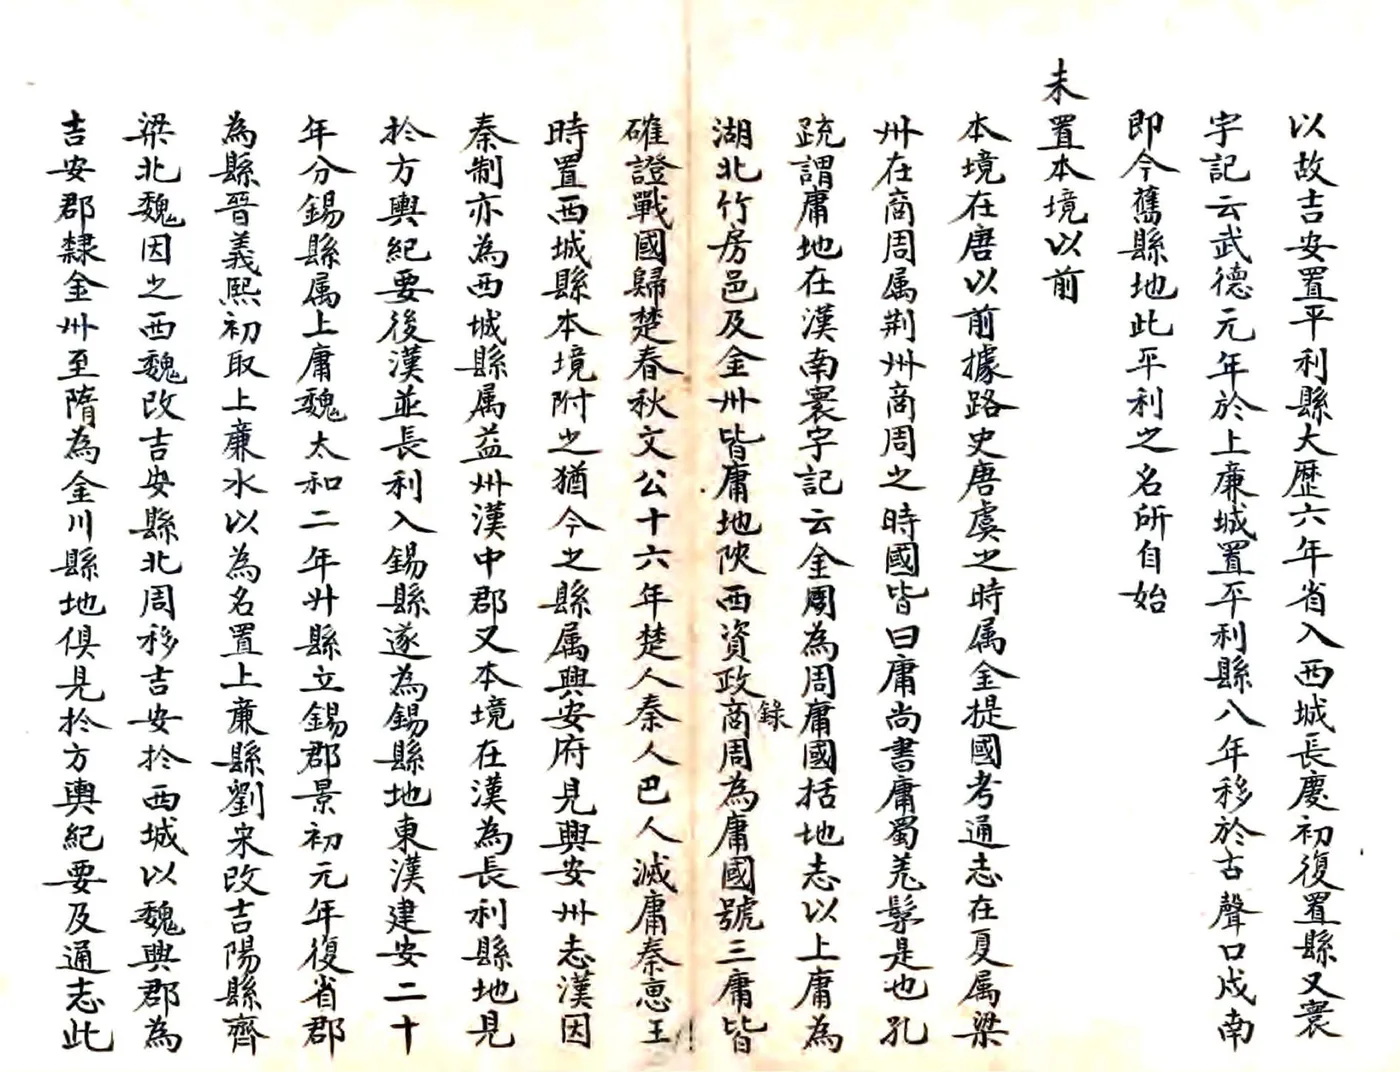 以故吉安置平利縣大歷六年省入西城長慶初復置縣又寰
宇記云武德元年於上廉城置平利縣八年移於古聲口戍南
即今舊縣地此平利之名所自始
未置本境以前
本境在唐以前據路史唐虞之時属金提國考通志在夏属梁
州在商周属荆州商周之時國皆曰庸尚書庸蜀羌髳是也孔
疏謂庸地在漢南寰宇記云金周為周庸國括地志以上庸為
湖北竹房邑及金州皆庸地陝西資政錄商周為庸國號三庸皆
確證戰國歸楚春秋文公十六年楚人秦人巴人滅庸秦惠王
時置西城縣本境附之猶今之縣属興安府見興安州志漢因
秦制亦為西城縣属益州漢中郡又本境在漢為長利縣地見
扵方輿紀要後漢並長利入錫縣遂為錫縣地東漢建安二十
年分錫縣属上庸魏太和二年廾縣立錫郡景初元年復省郡
為縣晉義熙初取上廉水以為名置上廉縣劉宋改吉陽縣齊
梁北魏因之西魏改吉安縣北周移吉安扵西城以魏興郡為
吉安郡隸金州至隋為金川縣地俱見扵方輿紀要及通志此